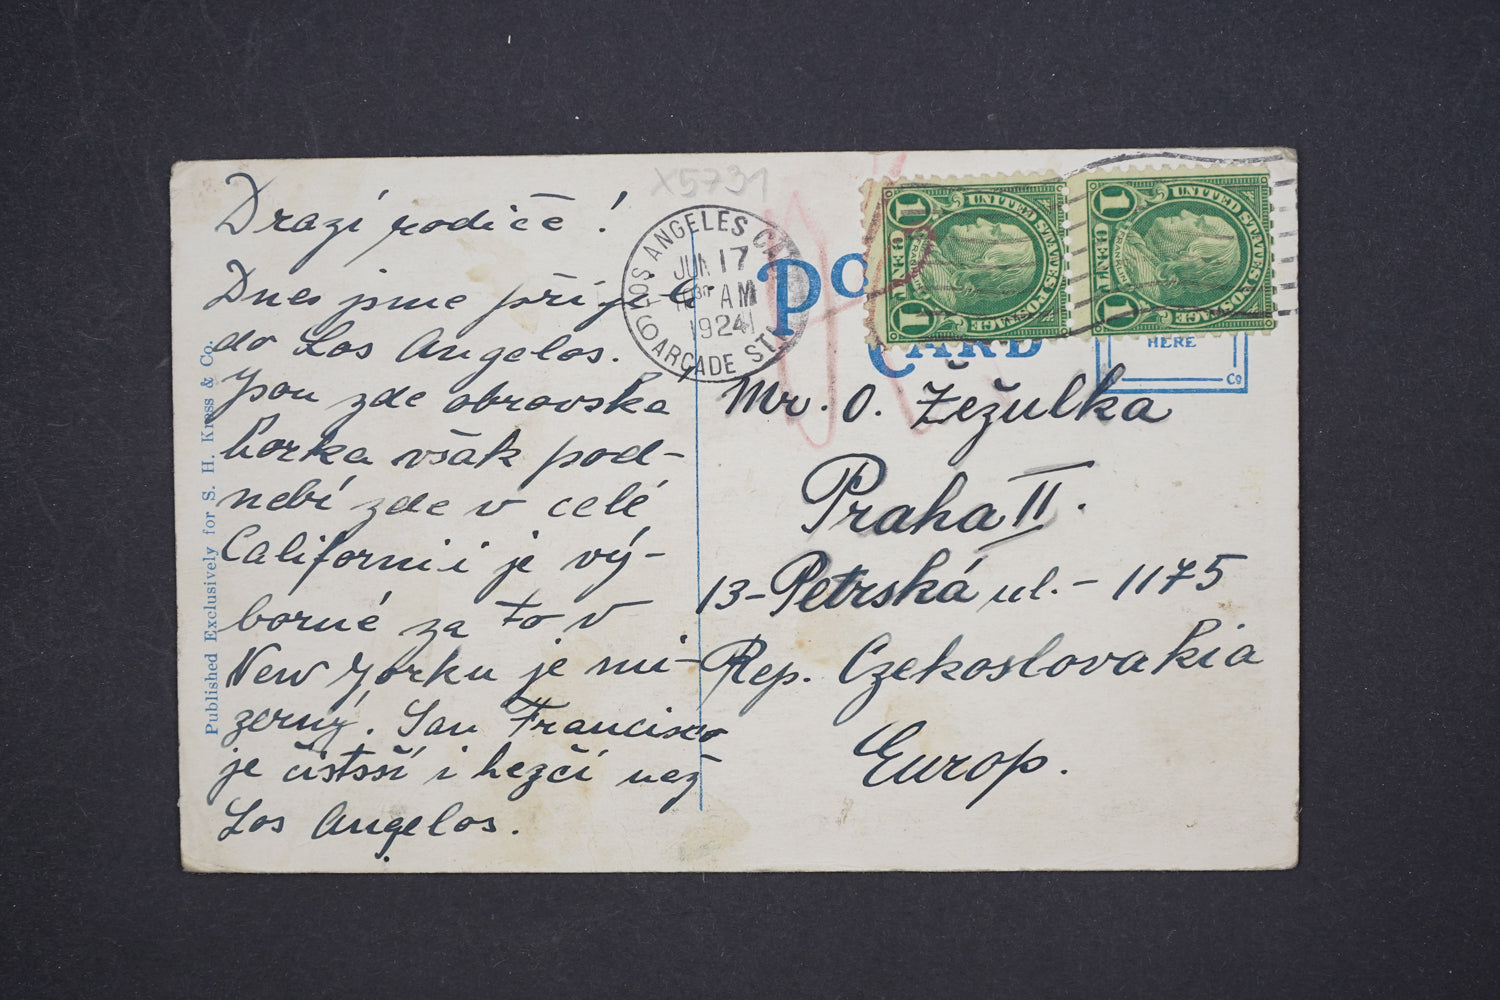 Drazí rodiče!
Dnes jsme přijeli
do Los Angelos.
Jsou zde obrovska
horka však pod-
nebí zde v celé
Californii je vý-
borné za to v
New Yorku je mi-
zerný. San Francisko
je čistsší i hezčí než
Los Angelos.
Published Exclusively for S. H. Kress & Co.
X5731
LOS ANGELES CAL
JUN 17
AM
1924
ARCADE ST.
PO
CARD
HERE
Co
UNITED STATES POSTAGE
FRANKLIN
1 CENT 1
UNITED STATES POSTAGE
FRANKLIN
1 CENT 1
Mr. O. Žežulka
Praha II.
13-Petrská ul.- 1175
Rep. Czekoslovakia
Europ.